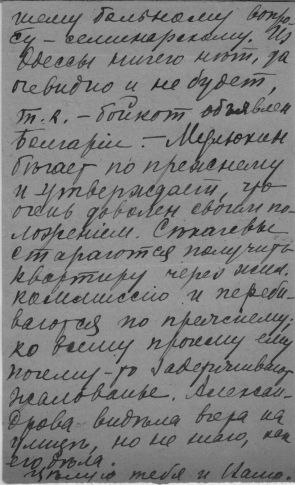 шему больному вопро-
су – семинарскому. Из
Одессы ничего нѣт, да
очевидно и не будет,
т. к. – бойкот объявлен
Болгаріи. – Милюкин
бѣгает по прежнему
и утверждает, что
очень доволен своим по-
ложеніем. Стараются получить
квартиру через
комиссію и переби-
ваются по прежнему,
ко всему прочему ему
почему-то задерживают
жалованье. Алексан-
дрова видѣла вчера на
улицѣ, но не знаю, как
его дѣла.
Цѣлую тебя и